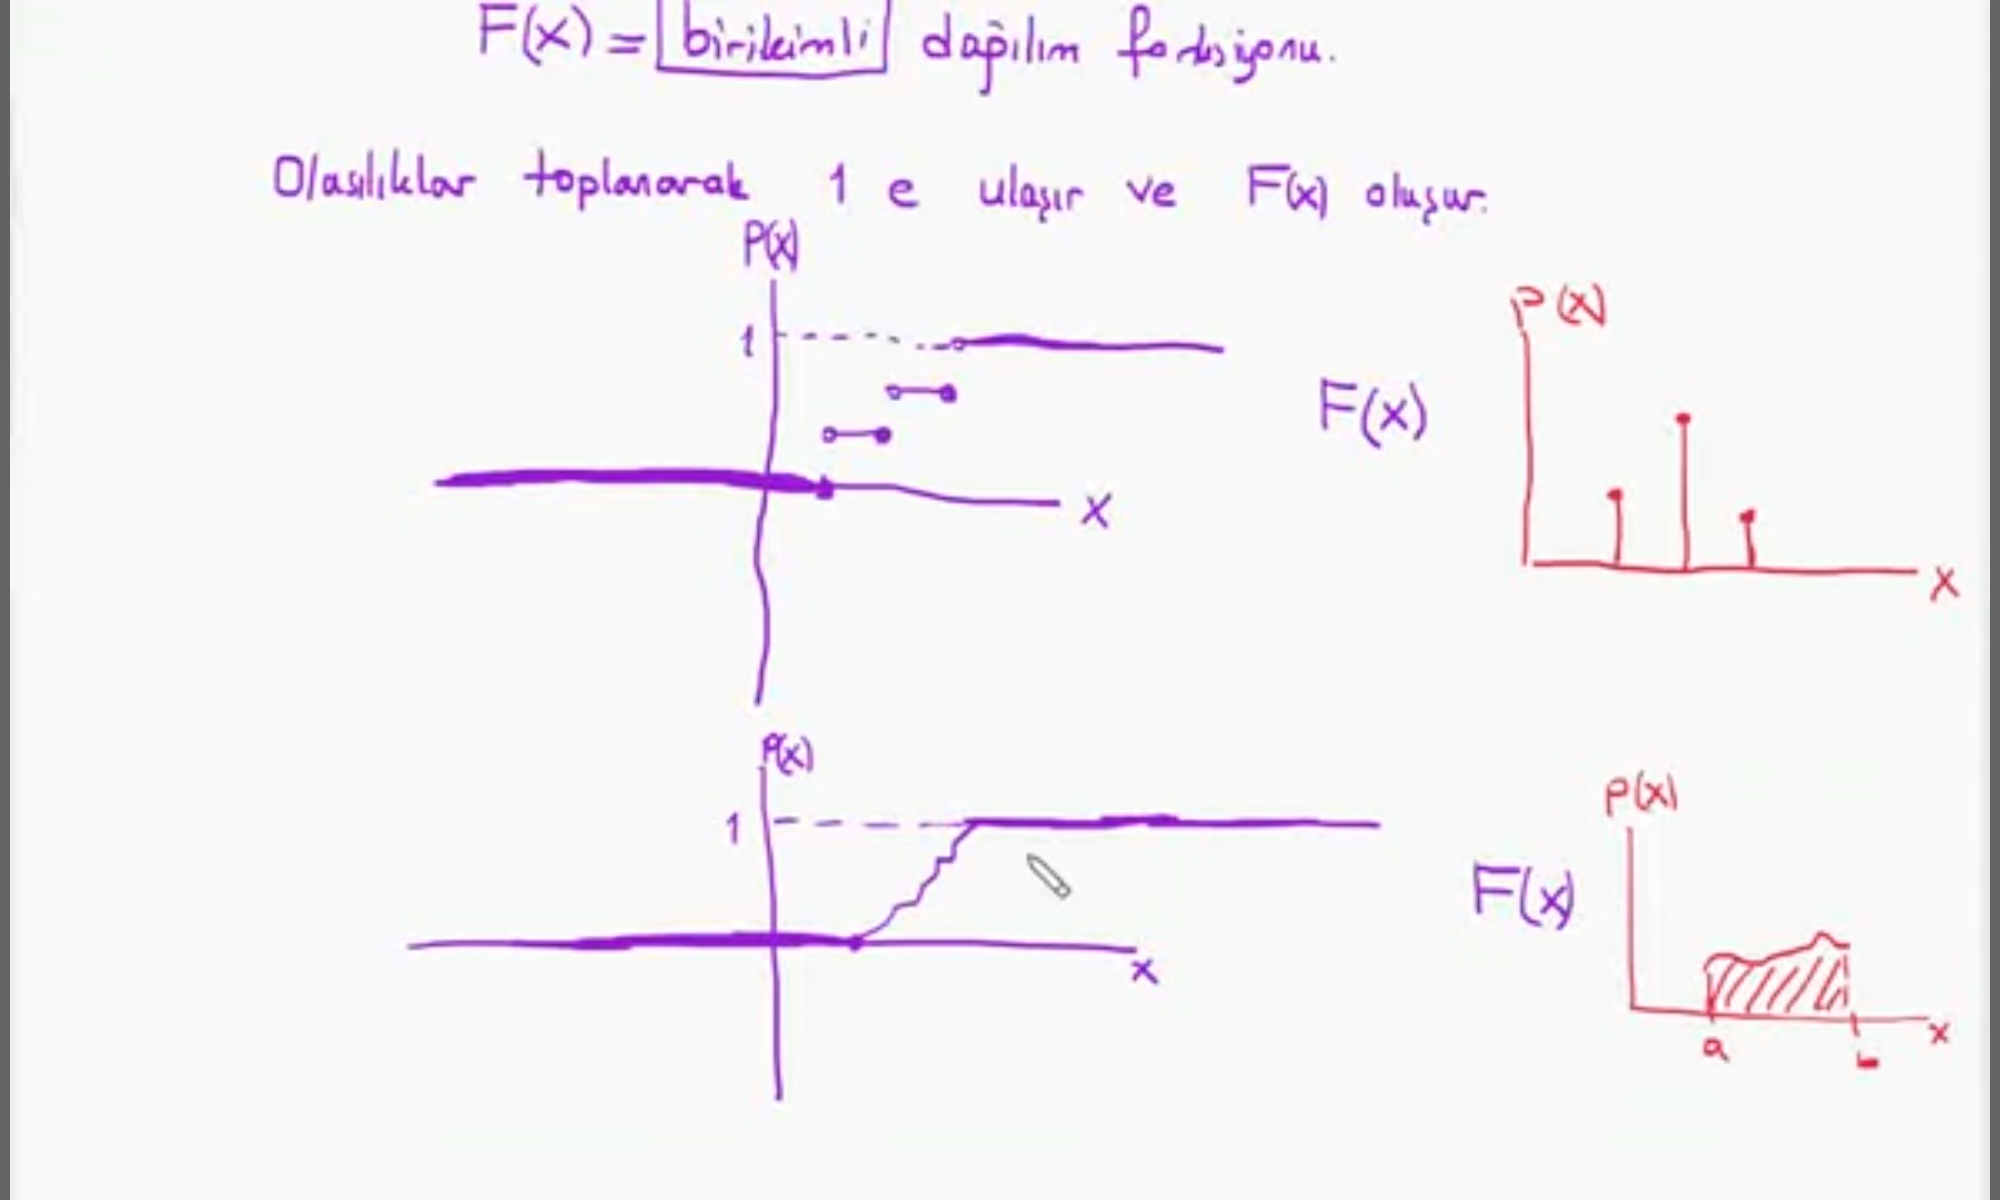 F(x) = birikimli dağılım fonksiyonu.
Olasılıklar toplanarak 1 e ulaşır ve F(x) oluşur.
P(x)
1
x
F(x)
P(x)
x
P(x)
1
x
F(x)
P(x)
a
b
x